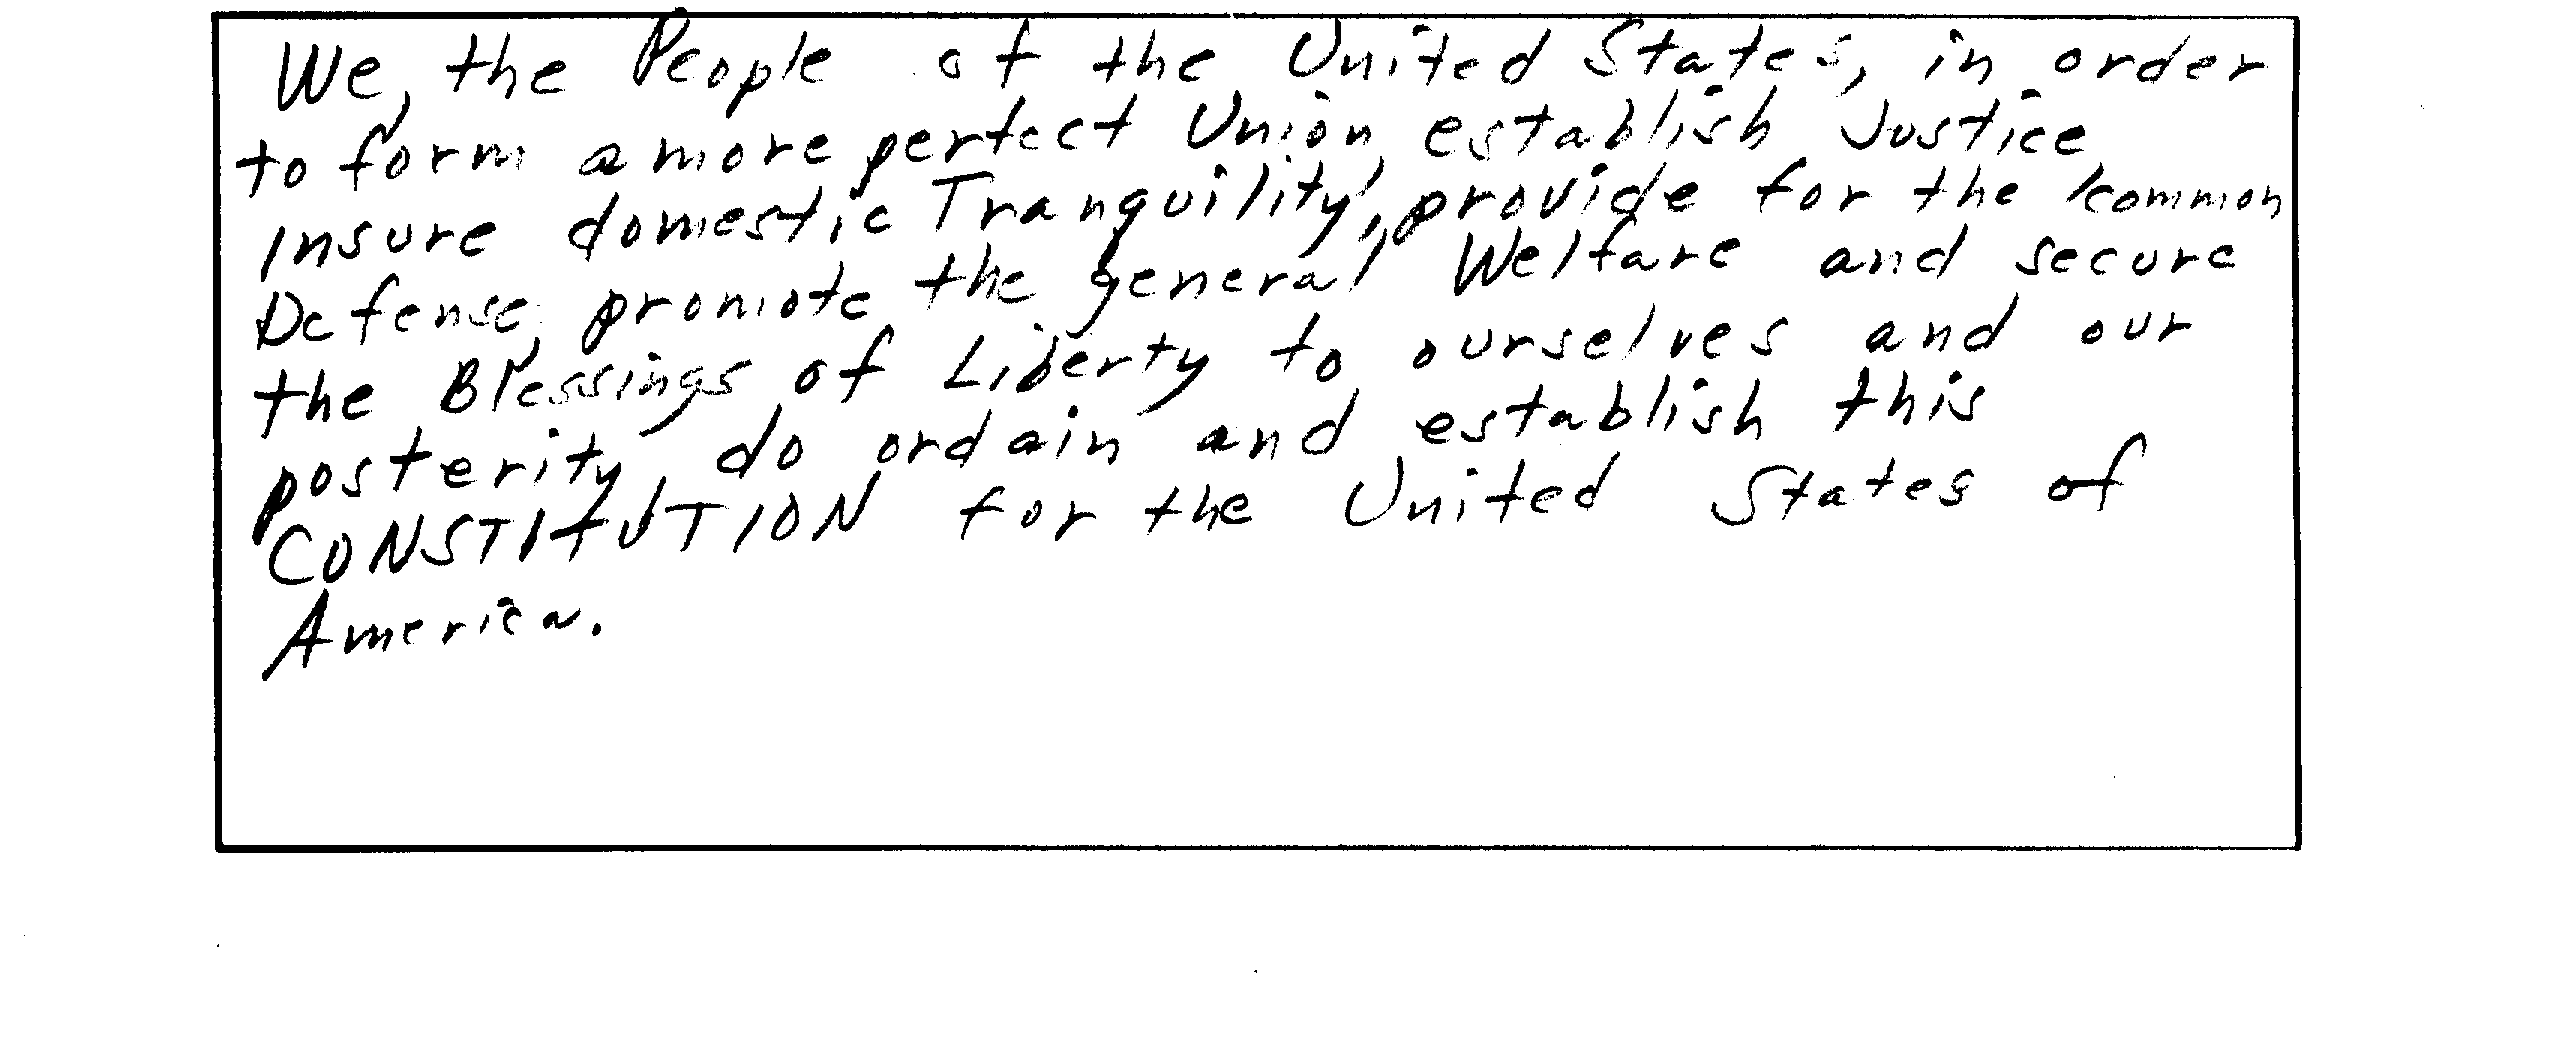 We, the People of the United States, in order
to form a more perfect Union, establish Justice,
insure domestic Tranquility, provide for the common
Defense, promote the general, Welfare and secure
the Blessings of Liberty to ourselves and our
posterity, do ordain and establish this
CONSTITUTION for the United States of
America.